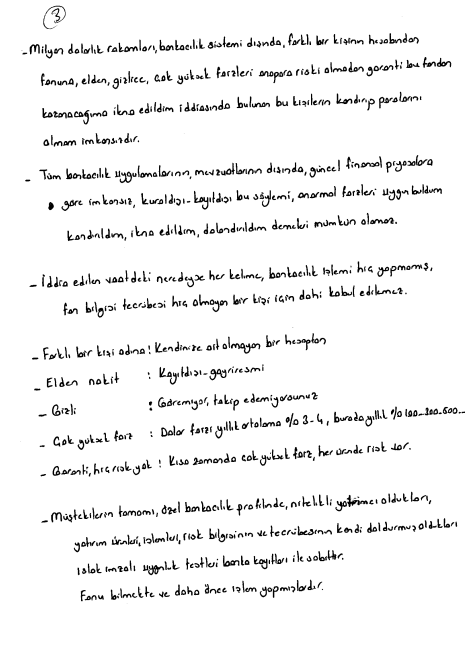 3
- Milyon dolarlık rakamları, bankacılık sistemi dışında, farklı bir kişinin hesabından
fonuna, elden, gizlice, çok yüksek faizleri anapara riski almadan garanti bu fondan
kazanacağıma ikna edildim iddiasında bulunan bu kişilerin kandırıp paralarını
almam imkansızdır.
- Tüm bankacılık uygulamalarının, mevzuatlarının dışında, güncel finansal piyasalara
göre imkansız, kuraldışı-kayıtdışı bu söylemi, anormal faizleri uygun buldum
kandırıldım, ikna edildim, dolandırıldım demeleri mümkün olamaz.
- İddia edilen vaatdeki neredeyse her kelime, bankacılık işlemi hiç yapmamış,
fon bilgisi tecrübesi hiç olmayan bir kişi için dahi kabul edilemez.
- Farklı bir kişi adına! Kendinize ait olmayan bir hesaptan
- Elden nakit : Kayıtdışı-gayriresmi
- Gizli : Göremiyor, takip edemiyorsunuz
- Çok yüksek faiz : Dolar faizi yıllık ortalama %3-4, burada yıllık %100-200-600-
- Garanti, hiç risk yok! Kısa zamanda çok yüksek faiz, her üründe risk var.
- Müştekilerin tamamı, özel bankacılık profilinde, nitelikli yatırımcı oldukları,
yatırım ürünleri, işlemleri, risk bilgisinin ve tecrübesinin kendi doldurmuş oldukları
ıslak imzalı uygunluk testleri banka kayıtları ile sabittir.
Fonu bilmekte ve daha önce işlem yapmışlardır.